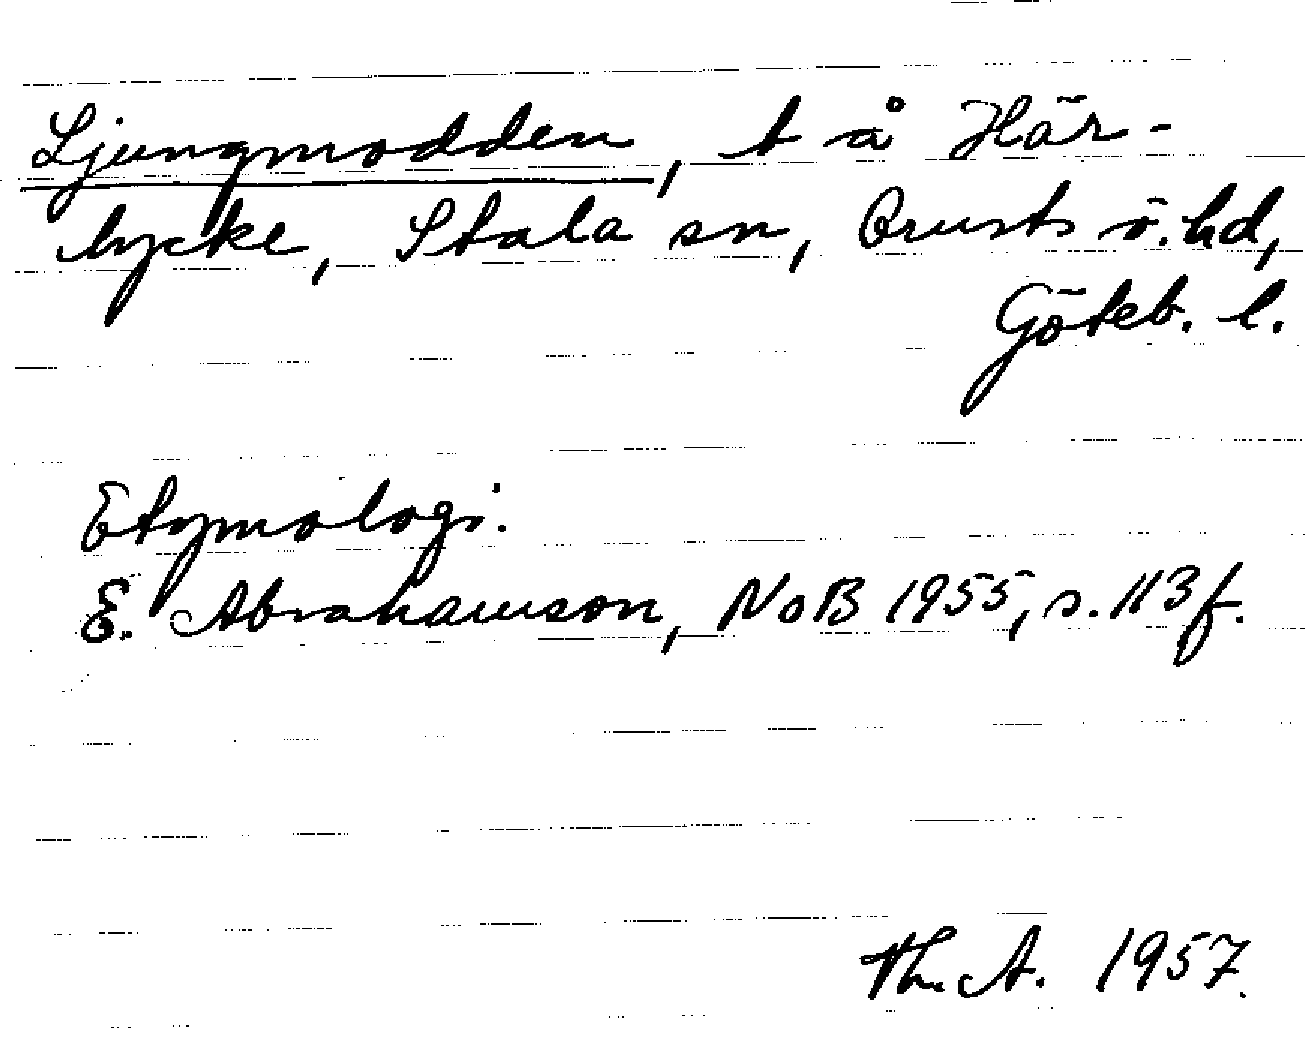 Ljungmodden, t å Här-
lycke, Stala sn, Orusts v. hd,
Göteb. l.
Etymologi.
E. Abrahamson, NoB 1955, s. 113 f.
Th. A. 1957.